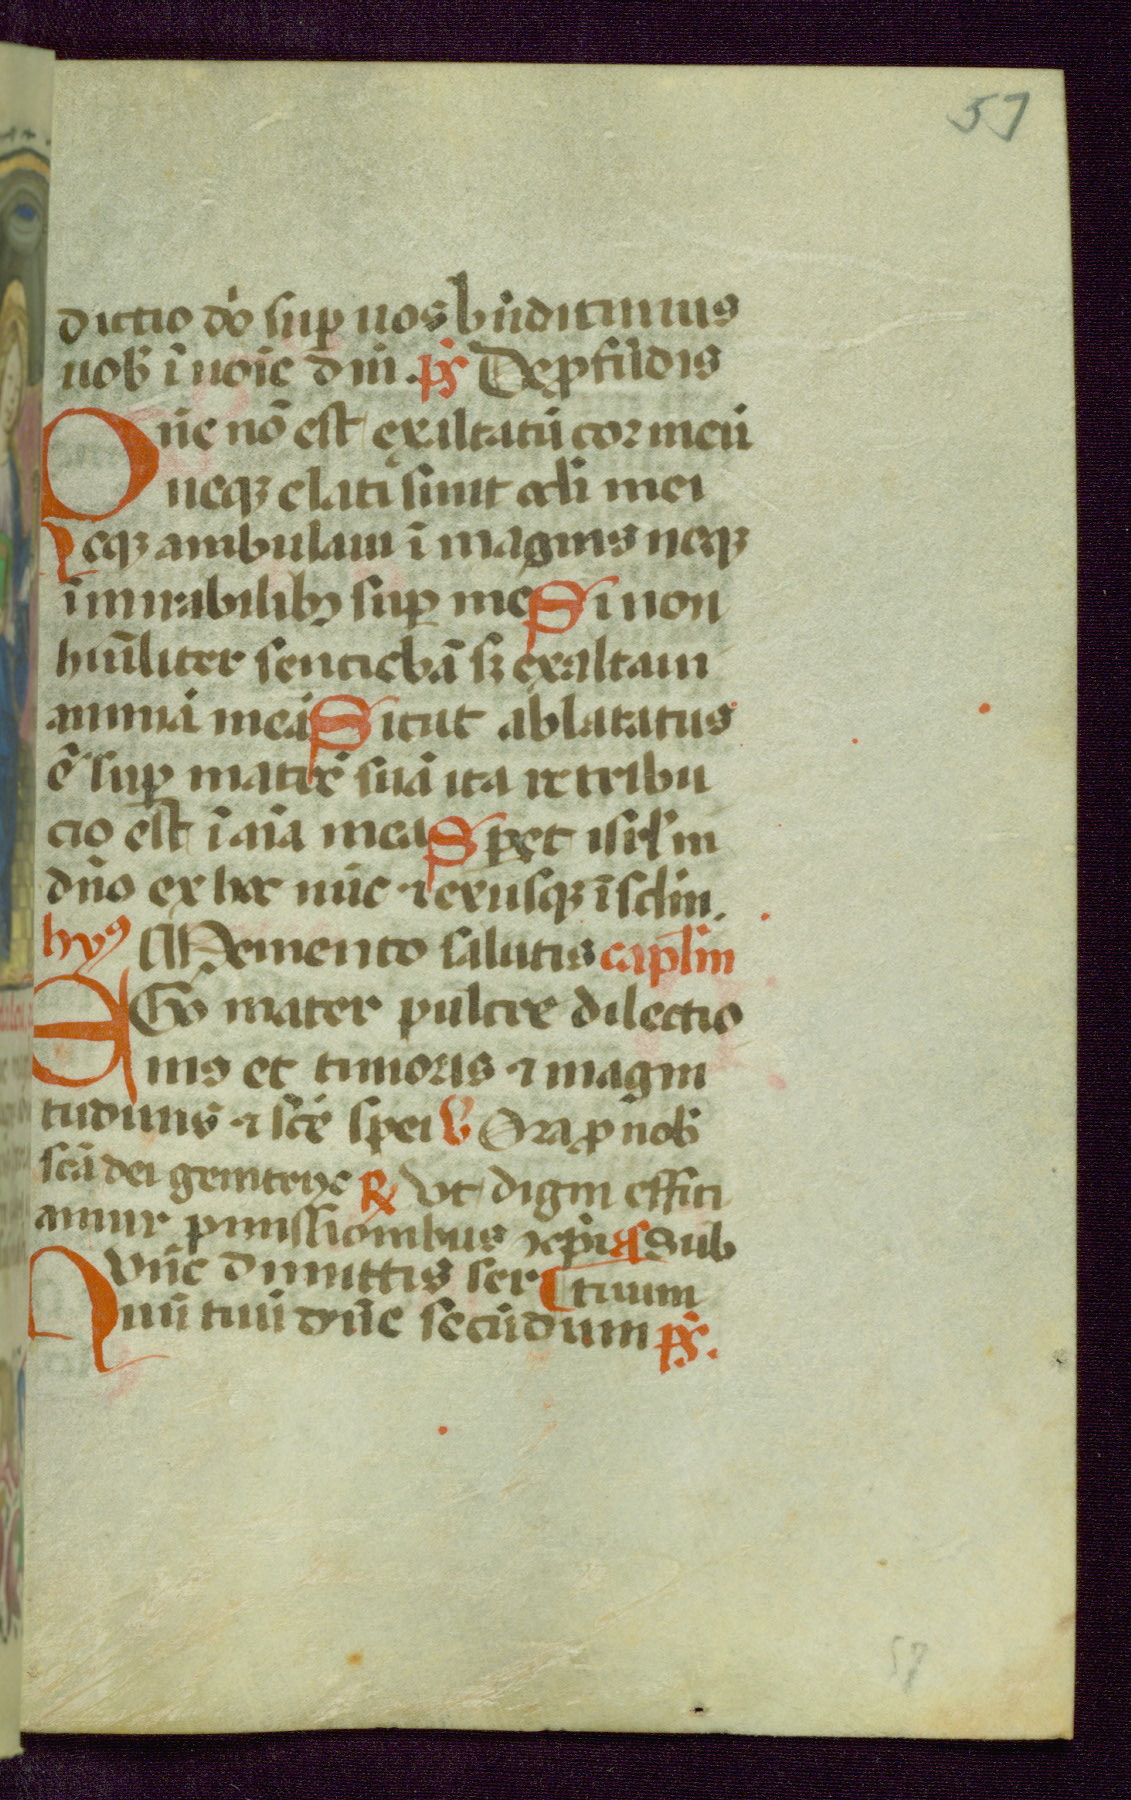 57
dictio dō suꝑ uos bn̄diximus
uob ī noīe dnī. pš De ꝓfūdis
Dn̄e nō est exaltatū cor meū
neqꝫ elati sunt ocli mei
Neqꝫ ambulaui ī magnis neqꝫ
ī mirabilibꝫ suꝑ me Si non
huml̄iter sentiebā sꝫ exaltaui
animā meā Sicut ablatatus
ē suꝑ matrē suā ita retribu
cio est ī aīa mea Speret isrl̄ in
dn̄o ex hoc nūc ⁊ exusqꝫ ī sclm̄.
hyꝰ Memento salutis caplm̄
EGo mater pulcre dilectio
nis et timoris ⁊ magni
tudinis ⁊ scē̄ spei V Ora ꝓ nob
scā dei genitrix ℞ Vt digni effici
amur pmissionibus xpi a Sub
Nvn̄c dimittis ser tuum
uū tuū dn̄e secūdum pš.
57